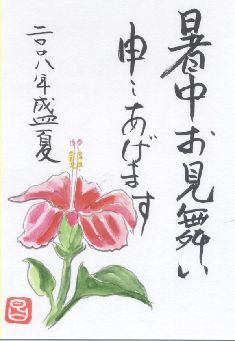 暑中お見舞い
申しあげます
二〇〇八年盛夏